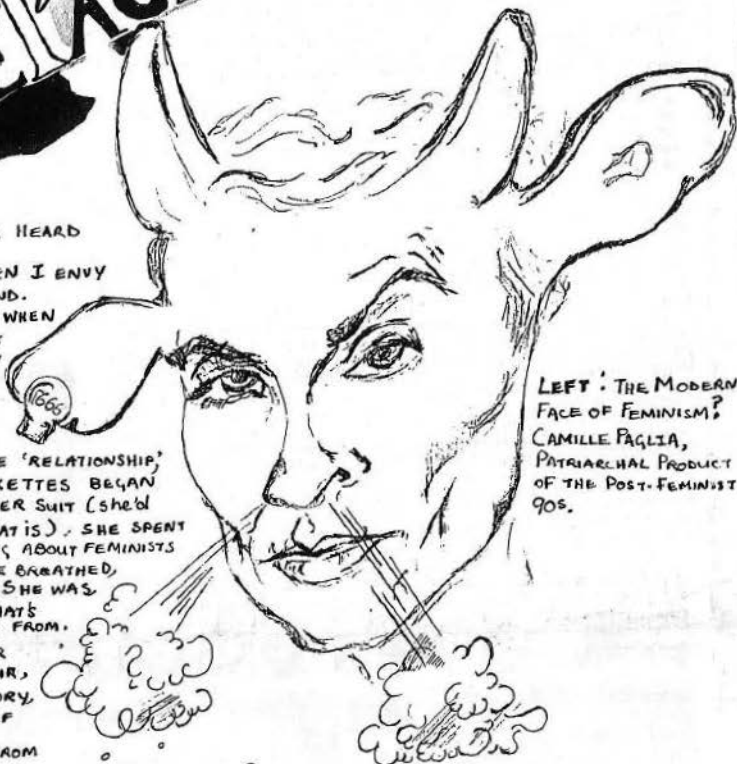 AGE
HEARD
EN I ENVY
ND.
WHEN
1666
E 'RELATIONSHIP,'
KETTES BEGAN
ER SUIT (she'd
AT is). SHE SPENT
G ABOUT FEMINISTS
E BREATHED,
SHE WAS,
HAT'S
FROM.
R
IR,
ORY,
F
ROM
LEFT: THE MODERN
FACE OF FEMINISM?
CAMILLE PAGLIA,
PATRIARCHAL PRODUCT
OF THE POST-FEMINIST
90s.